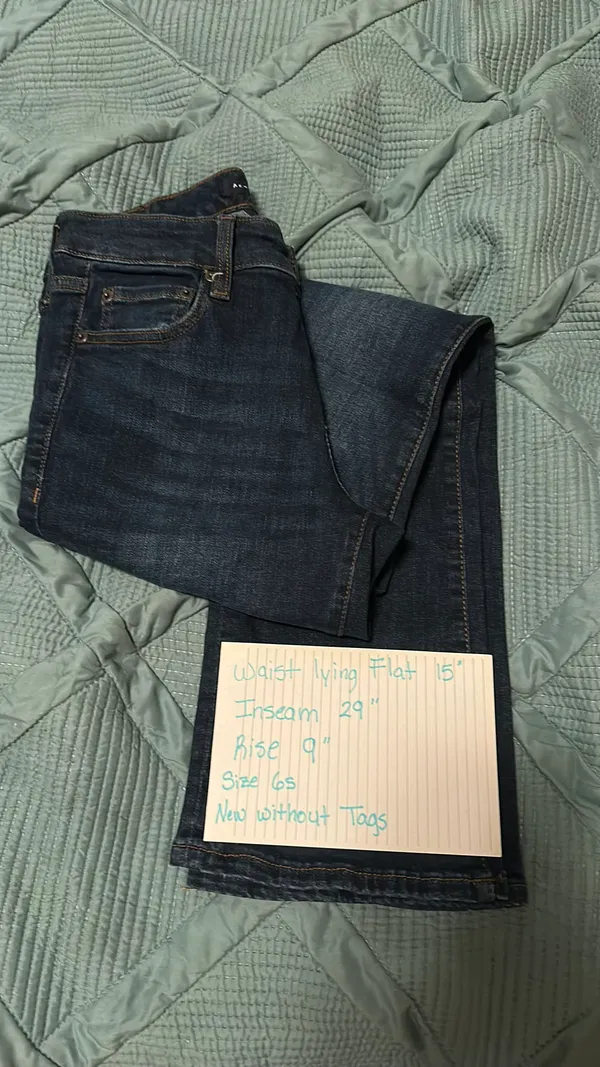 Waist lying Flat 15"
Inseam 29"
Rise 9"
Size 6s
New without Tags